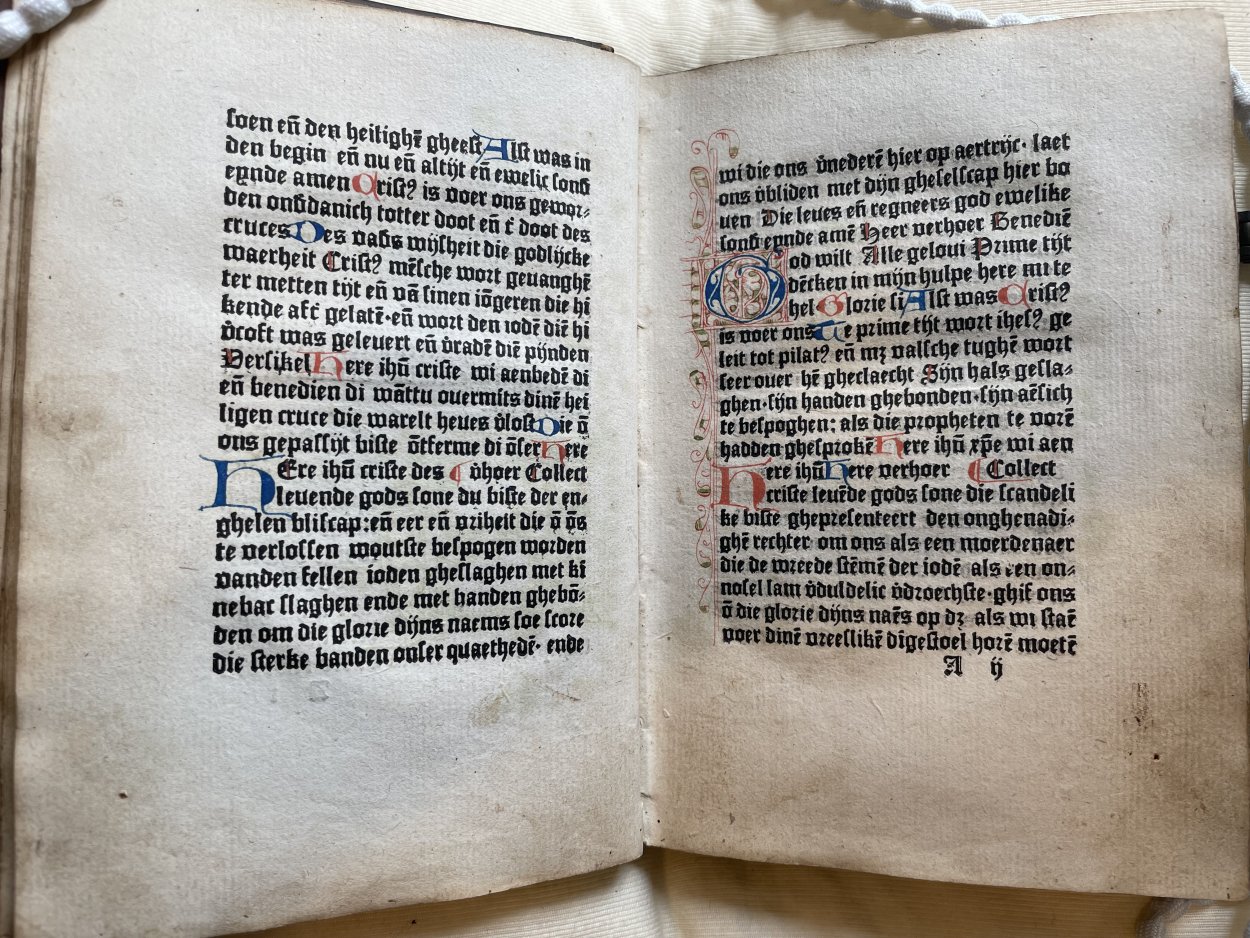 soen eñ den heilighē gheest Alst was in
den begin eñ nu eñ altijt eñ ewelic sond
eynde amen Cristꝰ is voer ons gewor⸗
den onđdanich totter doot eñ t̄ doot des
cruces Des vađs wijsheit die godlijcke
waerheit Cristꝰ mēsche wort geuanghē
ter metten tijt eñ vā sinen iōgeren die hi
kende aft̄ gelatē·eñ wort den iodē diē hi
v̄coft was geleuert eñ v̄radē diē pijnden
Versikel Here ihū criste wi aenbedē di
eñ benedien di wāttu ouermits dinē hei
ligen cruce die warelt heues v̄lost Die ō
ons gepassijt biste ōtferme di ōser Here
HEre ihū criste des v̄hoer Collect
leuende gods sone du biste der en⸗
ghelen bliscap:eñ eer eñ vriheit die ō ōs
te verlossen woutste bespogen worden
vanden fellen ioden gheslaghen met ki
nebac slaghen ende met banden ghebō⸗
den om die glorie dijns naems soe score
die sterke banden onser quaethedē· ende
wi die ons v̄nederē hier op aertrijc· laet
ons v̄bliden met dijn gheselscap hier bo
uen Die leues eñ regneers god ewelike
sond eynde amē Heer verhoer Benediē
God wilt Alle geloui Prime tijt
dēcken in mijn hulpe here mi te
hel Glorie si Alst was Cristꝰ
is voer ons Te prime tijt wort ihesꝰ ge
leit tot pilatꝰ eñ mꝫ valsche tughē wort
seer ouer hē gheclaecht Sijn hals gesla⸗
ghen·sijn handen ghebonden·sijn aēsich
te bespoghen: als die propheten te vorē
hadden ghesprokē Here ihū xp̄e wi aen
Here ihū Here verhoer Collect
criste leuēde gods sone die scandeli
ke biste ghepresenteert den onghenadi⸗
ghē rechter om ons als een moerdenaer
die de wreede stēmē der iodē als een on⸗
nosel lam v̄duldelic v̄droechste·ghif ons
ō die glorie dijns naēs op dꝫ als wi staē
voer dinē vreeslikē dīgestoel horē moetē
A ij